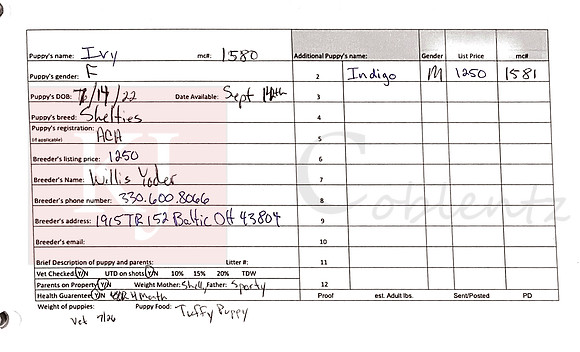 Puppy's name: Ivy mc#: 1580 Additional Puppy's name: Gender List Price mc#
Puppy's gender: F 2 Indigo M 1250 1581
Puppy's DOB: 7/14/22 Date Available: Sept 14th 3
Puppy's breed: Shelties 4
Puppy's registration: ACA 5
(if applicable)
Breeder's listing price: 1250 6
Breeder's Name: Willis Yoder 7
Breeder's phone number: 330.600.8066 8
Breeder's address: 1915 TR 152 Baltic OH 43804 9
Breeder's email: 10
Brief Description of puppy and parents: Litter #: 11
Vet Checked Y/N UTD on shots Y/N 10% 15% 20% TDW
Parents on Property Y/N Weight Mother: Shelly Father: Sporty 12
Health Guarentee Y/N Month Proof est. Adult lbs. Sent/Posted PD
Weight of puppies: Puppy Food: Tuffy Puppy
Vet 7/26
Coblentz